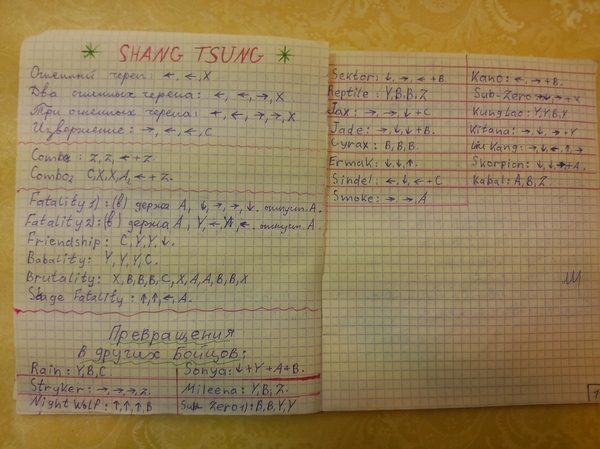 * SHANG TSUNG *
Огненный череп: ←, ←, X
Два огненных черепа: ←, ←, →, X
Три огненных черепа: ←, ←, →, →, X
Извержение: →, ←, ←, C
Combo1: Z, Z, ← + Z.
Combo2 C, X, X, A, ← + Z.
Fatality 1): (в) держа A, ↓, →, →, ↓. отпуст. A.
Fatality 2): (в) держа A, Y, ←, Y, ←. отпуст. A.
Friendship: C, Y, Y, ↓.
Babality: Y, Y, Y, C.
Brutality: X, B, B, B, C, X, A, A, B, B, X
Stage Fatality: ↑, ↑, ←, A.
Превращения
в других бойцов:
Rain: Y, B, C
Stryker: →, →, →, Z.
Night Wolf: ↑, ↑, ↑, B
Sonya: ↓ + Y + A + B.
Mileena: Y, B, Z.
Sub-Zero 1): B, B, Y, Y
Sektor: ↓, →, ← + B.
Reptile: Y, B, B, Z
Jax: →, →, ↓ + C
Jade: →, ↓, ↓ + B.
Cyrax: B, B, B.
Ermak: ↓, ↓, ↑.
Sindel: ←, ↓, ← + C
Smoke: → → A
Kano: ←, → + B.
Sub-Zero → + X
Kung Lao: Y, Y, B, Y
Kitana: →, ↓, → + Y
Liu Kang: →, ↓, ←, ↑, →
Skorpion: ↓, ↓, → + A.
Kabal: A, B, Z.